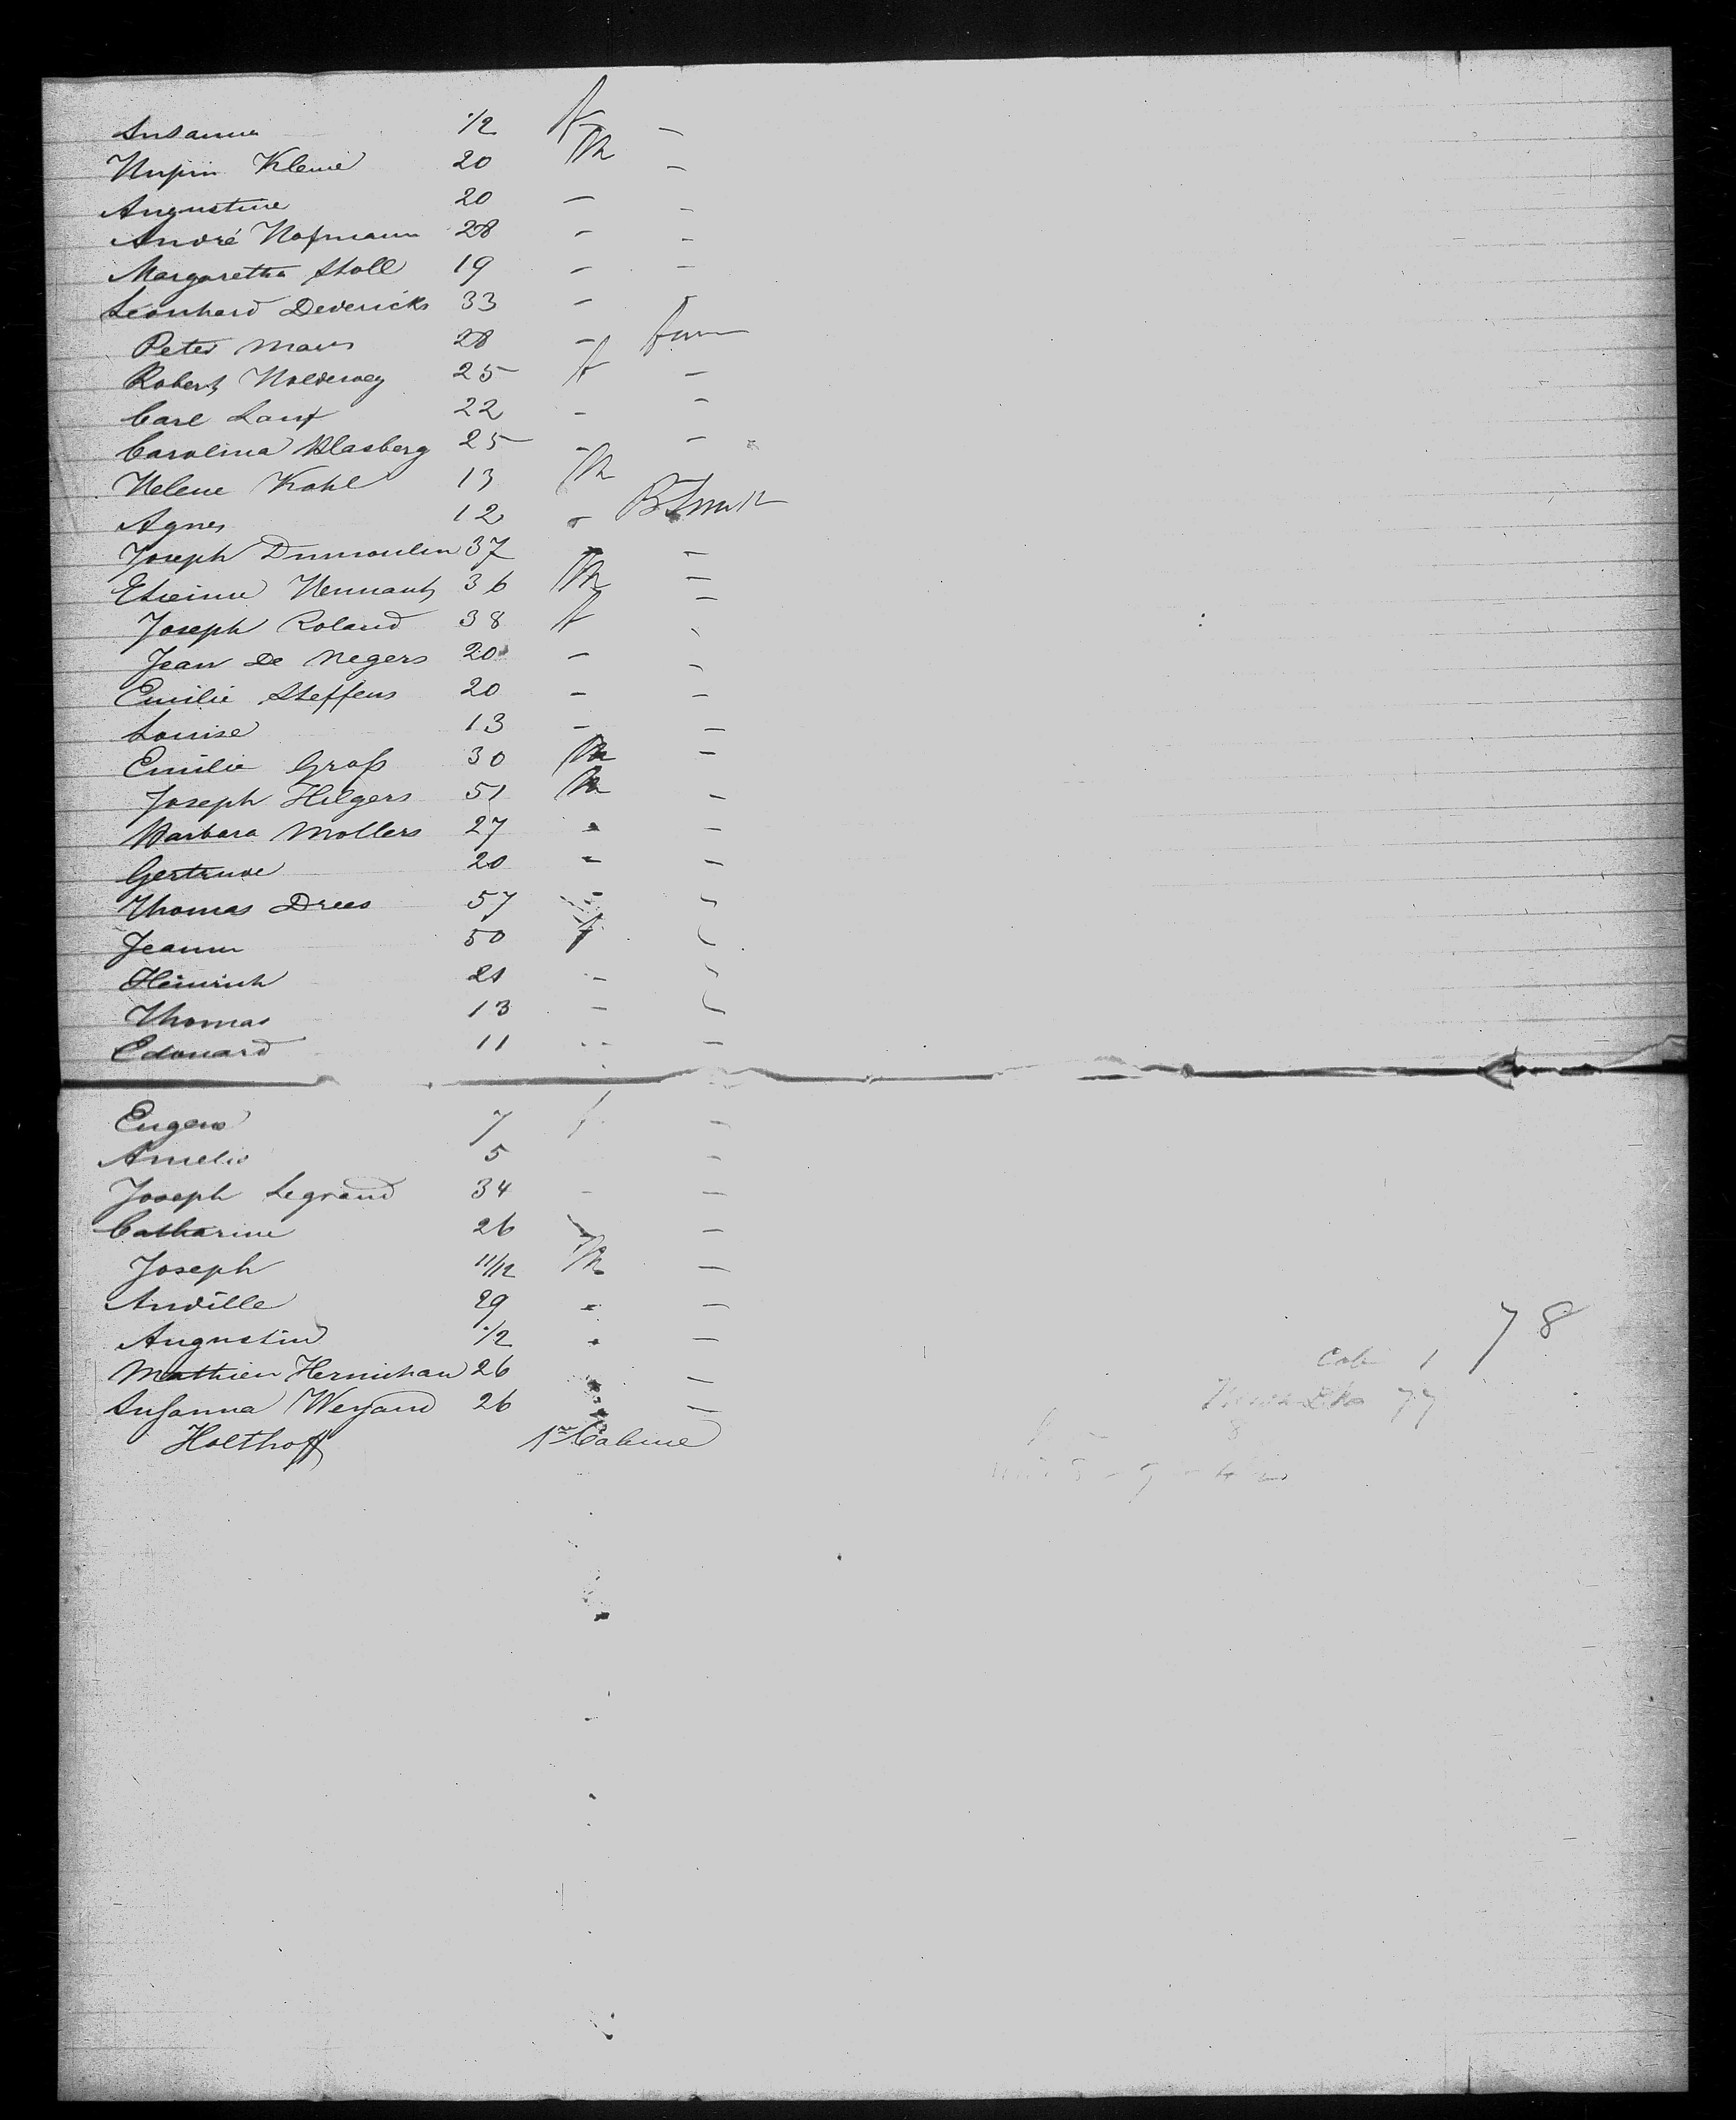 Susanna 1/2 f -
Klemie 20 M -
Augustine 20 - -
André Hofmann 28 - -
Margaretha Stoll 19 - -
Leonhard Dedericks 33 -
Peter Maus 28 -
Robert Holderweg 25 f -
Carl Lauf 22 - -
Carolina Blasberg 25 - -
Helene Kohl 13 M
Agnes 12 -
Joseph Dumoulin 37 - -
Etienne Hennaut 36 M -
Joseph Roland 38 f -
Jean De Negers 20 - -
Emilie Steffens 20 - -
Louise 13 - -
Emilie Groß 30 M -
Joseph Hilgers 51 M -
Barbara Mollers 27 - -
Gertrude 20 - -
Thomas Drees 57 - -
Jeanne 50 f
Heinrich 21 -
Thomas 13 -
Edouard 11 - -
Eugene 7 f -
Amelie 5 -
Joseph Legrand 34 - -
Catharine 26 -
Joseph 11/12 M -
29 - -
Augustine 1/2 - -
Mathieu 26 -
Susanna Weyand 26 -
Holthoff 1re Cabine
78
Cab 1
77